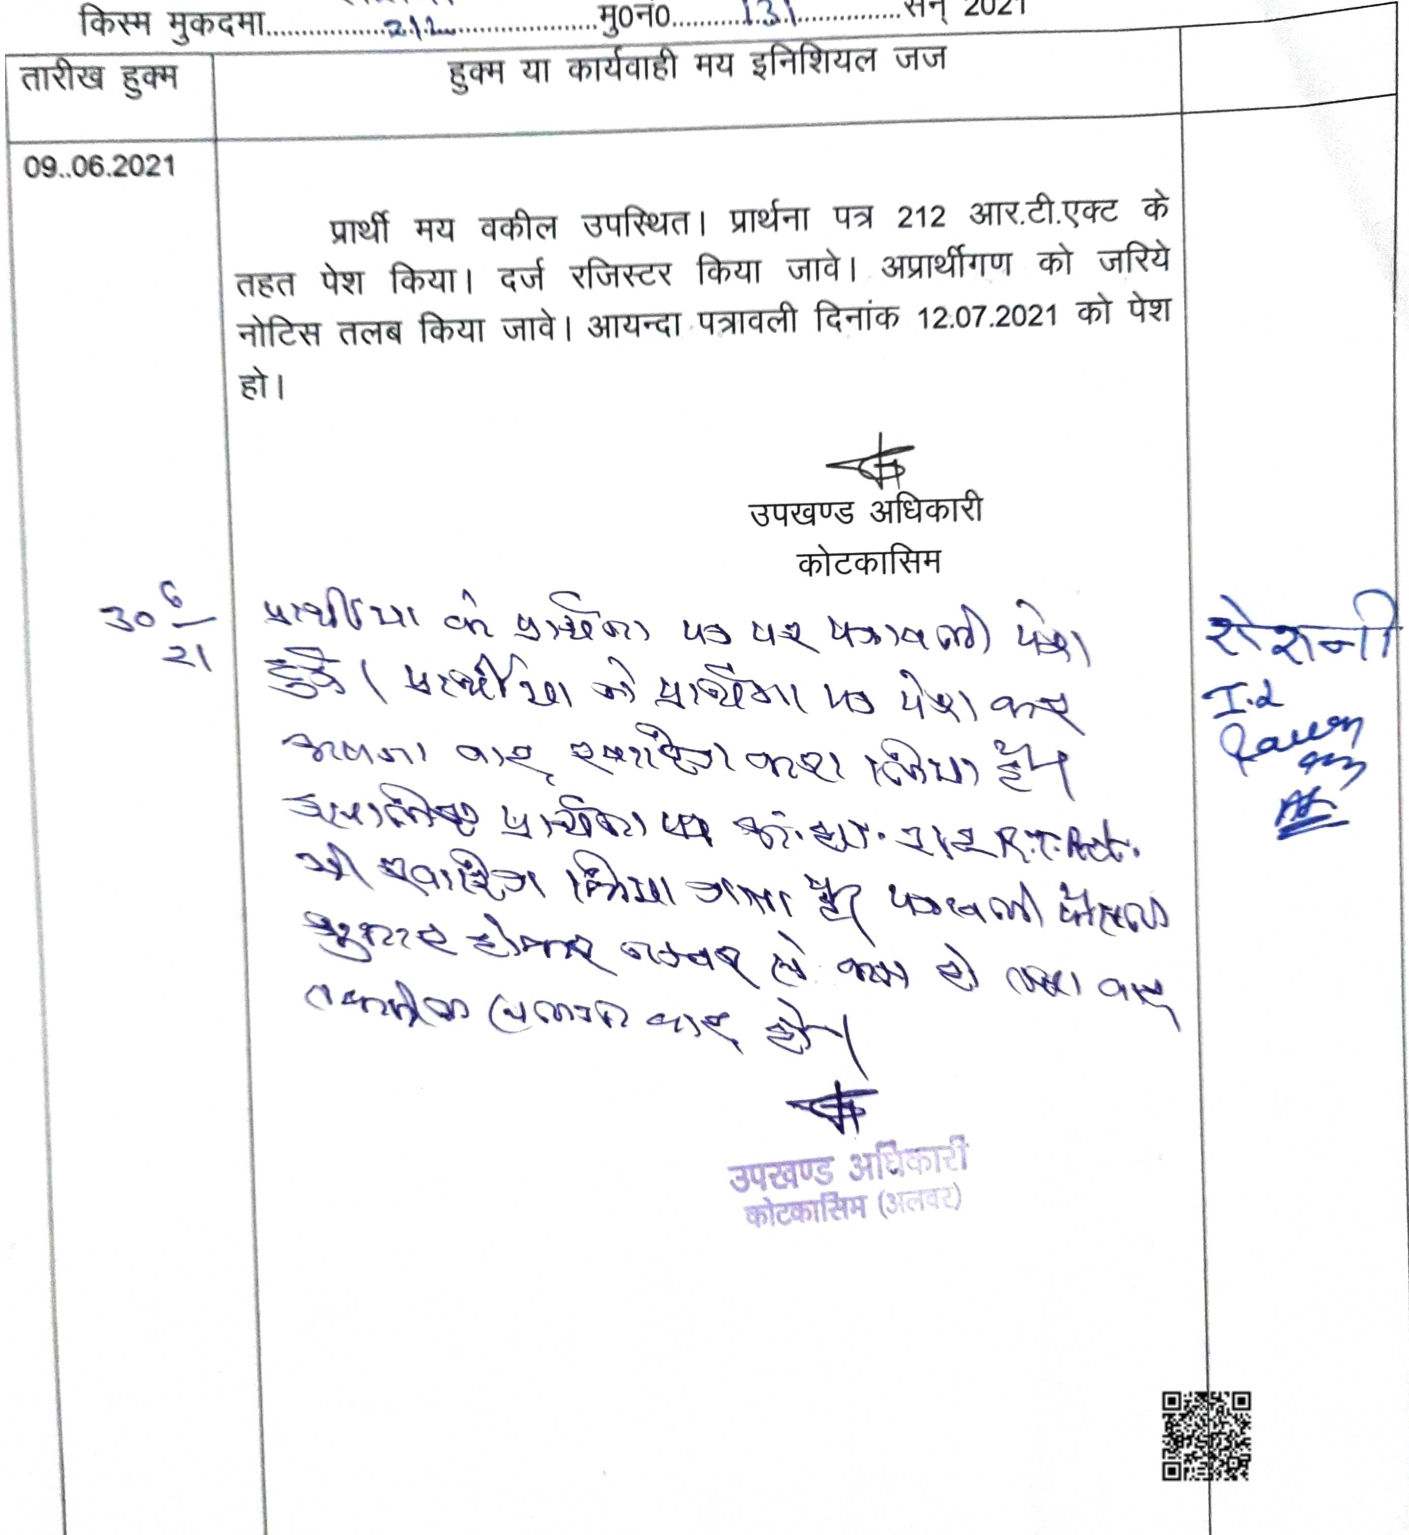 किस्म मुकदमा..................212........................मु0नं0............131..................सन् 2021
तारीख हुक्म
हुक्म या कार्यवाही मय इनिशियल जज
09..06.2021
प्रार्थी मय वकील उपस्थित। प्रार्थना पत्र 212 आर.टी.एक्ट के
तहत पेश किया। दर्ज रजिस्टर किया जावे। अप्रार्थीगण को जरिये
नोटिस तलब किया जावे। आयन्दा पत्रावली दिनांक 12.07.2021 को पेश
हो।
उपखण्ड अधिकारी
कोटकासिम
30 6/21
प्रार्थीया के प्रार्थना पत्र पर पत्रावली पेश
हुई। प्रार्थीया ने प्रार्थना पत्र पेश कर
अपना वाद खारिज करा लिया है।
इसलिए प्रार्थना पत्र अं.धा. 212 R.T.Act.
भी खारिज किया गया है। पत्रावली फैसल
शुमार होकर नम्बर से कम हो तथा वाद
तकमील दाखिल हो।
रोशनी
I.d
उपखण्ड अधिकारी
कोटकासिम (अलवर)